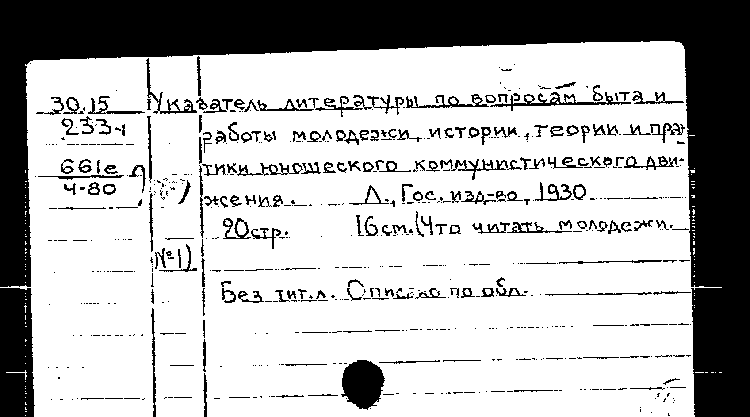 30.15 Указатель литературы по вопросам быта и
233-4 работы молодежи, истории, теории и прак-
661е тики юношеского коммунистического дви-
4-80 жения. Л., Гос. изд-во, 1930
20стр. 16см. (Что читать молодежи.
№1)
Без тит.л. Описано по обл.